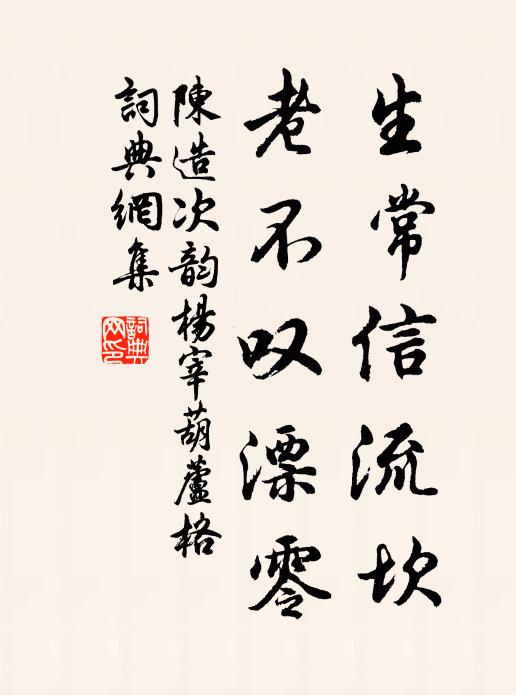 生常信流坎
老不叹漂零
陳造次韵楊宰葫蘆格
詞典網集
詞典网印